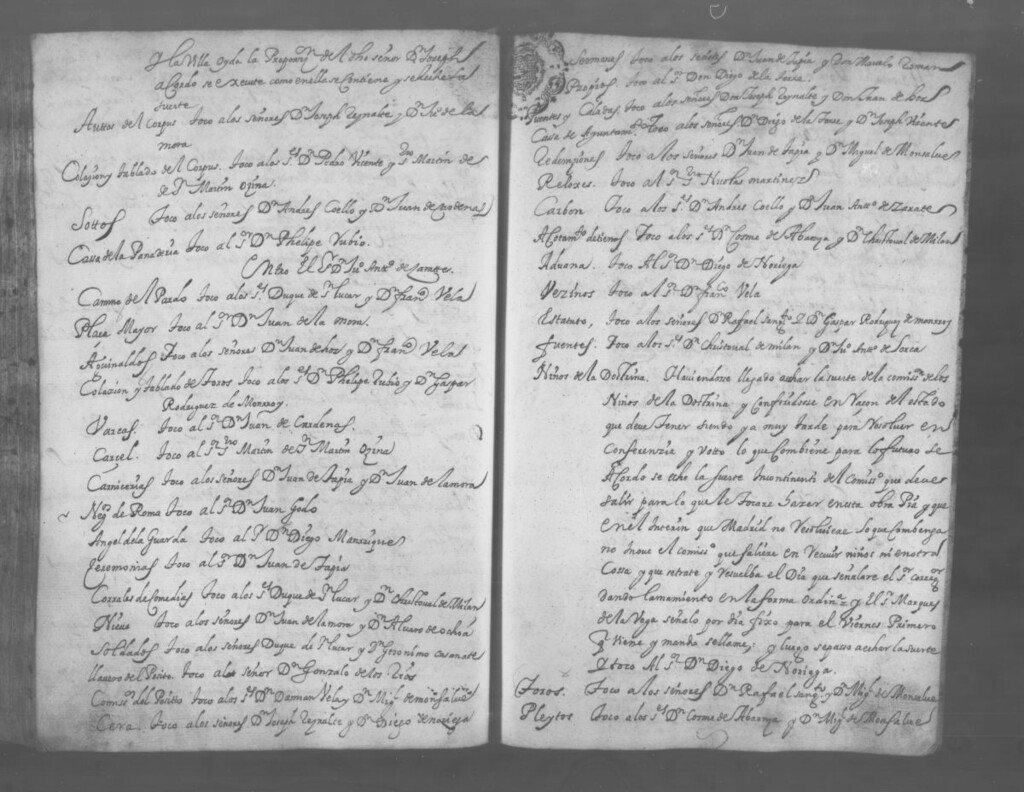 Y la Villa oyda la Proposon del dho señor Dn Joseph
acordo se execute como en ella se Contiene y se echen a
suerte
Autos del Corpus toco a los señores Dn Joseph Reynalte y Dn Jun de la
mora
Colaçion y tablado del Corpus. toco a los ss Dn Pedro Vicente y Dn Martin de
Sn Martin Ozina.
Sottos toco a los señores Dn Andres Coello y Dn Juan de
Cassa de la Panaderia toco al sr Dn Phelipe Rubio.
Entro el sr Dn Juo Anto de Zarate.
Camino del Pardo toco a los ss Duque de Sn lucar y Dn Franco Vela
Plaça Mayor toco al sr Dn Juan de la mora.
Aguinaldos toco a los señores Dn Juan de hoz y Dn Franco Vela
Colaçion y tablado de Toros toco a los ss Dn Phelipe Rubio y Dn Gaspar
Rodriguez de Monrroy.
Varcas. toco al sr Dn Juan de Cardenas.
Carcel. toco al sr Dn Martin de Sn Martin Ozina
Carnicerias toco a los señores Dn Juan de Tapia y Dn Juan de la mora
Nego de Roma toco al sr Dn Juan Gedo
Angel de la Guarda toco al sr Dn Diego Manrrique
Çeremonias toco al sr Dn Juan de Tapia
Corrales de Comedias toco a los ss Duque de Sn lucar y Dn Christoual de Milan
Nieue toco a los señores Dn Juan de la mora y Dn Aluaro de ochoa
Soldados toco a los señores Duque de Sn lucar y Dn Geronimo Casanate
llauero del Posito. toco a el señor Dn Gonzalo de los Rios
Comiso del Posito toco a los ss Dn Damian Vela y Dn Migl de monsalue
Cera. toco a los señores Dn Joseph Reynalte y Dn Diego de noriega
Sermones toco a los señores Dn Juan de Tapia y Don Manuel Roman
Propios toco al sr Don Diego de la Torre.
Puentes y Calçadas. toco a los señores Don Joseph Reynalte y Don Juan de hoz
Cassa de Ayuntamo toco a los señores Dn Diego de la Torre y Dn Joseph Vicente
Redempçiones toco a los señores Dn Juan de Tapia y Dn Miguel de Monsalue
Reloxes. toco al sr Dn Nicolas martinez
Carbon toco a los ss Dn Andres Coello y Dn Juan Anto de Zarate
Acotamo de tierras toco a los ss Dn Cosme de Abaunza y Dn Christoual de Milan
Aduana. toco al sr Dn Diego de Noriega
Vezinos toco al sr Dn Franco Vela
Estatuto, toco a los señores Dn Rafael Sango y Dn Gaspar Rodriguez de monrroy
Fuentes. toco a los ss Dn Christoual de milan y Dn Juo Anto de
Niños de la Dotrina. Hauiendosse llegado a echar la suerte de la comisson de los
Niños de la Dotrina y Confiriendosse en Raçon del estado
que deue tener siendo ya muy tarde para Resoluer en
Conferenzia y Votto lo que combiene para lo futuro se
acordo se eche la suerte Incontinenti del Comisso que deue
salir para lo que le tocare hazer en esta obra Pia y que
en el Interin que Madrid no Resoluiere lo que combenga
no inoue el comisso que saliere en Reciuir niños ni en otra
Cossa y que se trate y Resuelba el Dia que señalare el sr corregor
dando llamamiento en la forma ordina y el sr Marques
de la Vega señalo por dia fixo para el Viernes Primero
q viene y mando se llame; y luego se passo a echar la suerte
y toco al sr Dn Diego de Noriega.
Toros. toco a los señores Dn Rafael Sango y Dn Migl de Monsalue
Pleytos toco a los ss Dn Cosme de Abaunza y Dn Migl de Monsalue